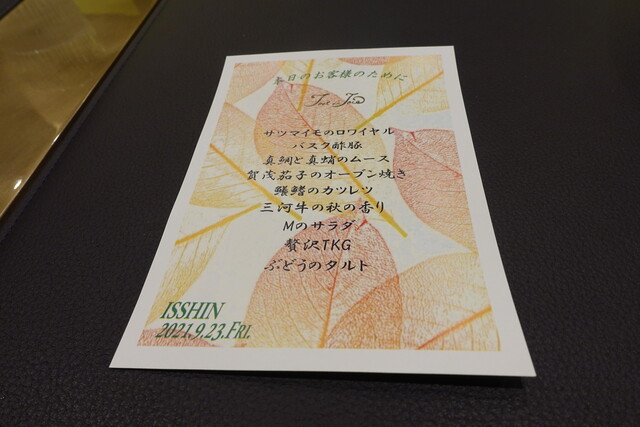 本日のお客様のために
サツマイモのロワイヤル
バスク酢豚
真鯛と真蛸のムース
賀茂茄子のオーブン焼き
鱶鰭のカツレツ
三河牛の秋の香り
Mのサラダ
贅沢TKG
ぶどうのタルト
ISSHIN
2021.9.23.FRI.